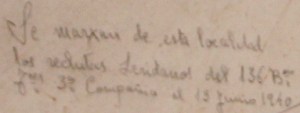 Se marxan de esta localidad
los reclutas Leridanos del 136 Bon
3ª Compañia el 13 Junio 1940